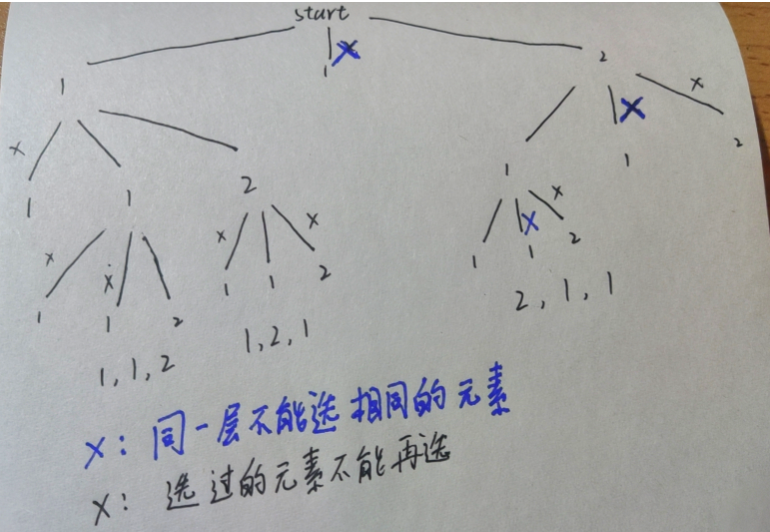 start
x
1
1
2
x
x
x
1
1
2
1
1
2
x
x
x
x
x
x
1
1
2
1
1
2
1
1
2
1,1,2
1,2,1
2,1,1
x: 同一层不能选相同的元素
x: 选过的元素不能再选